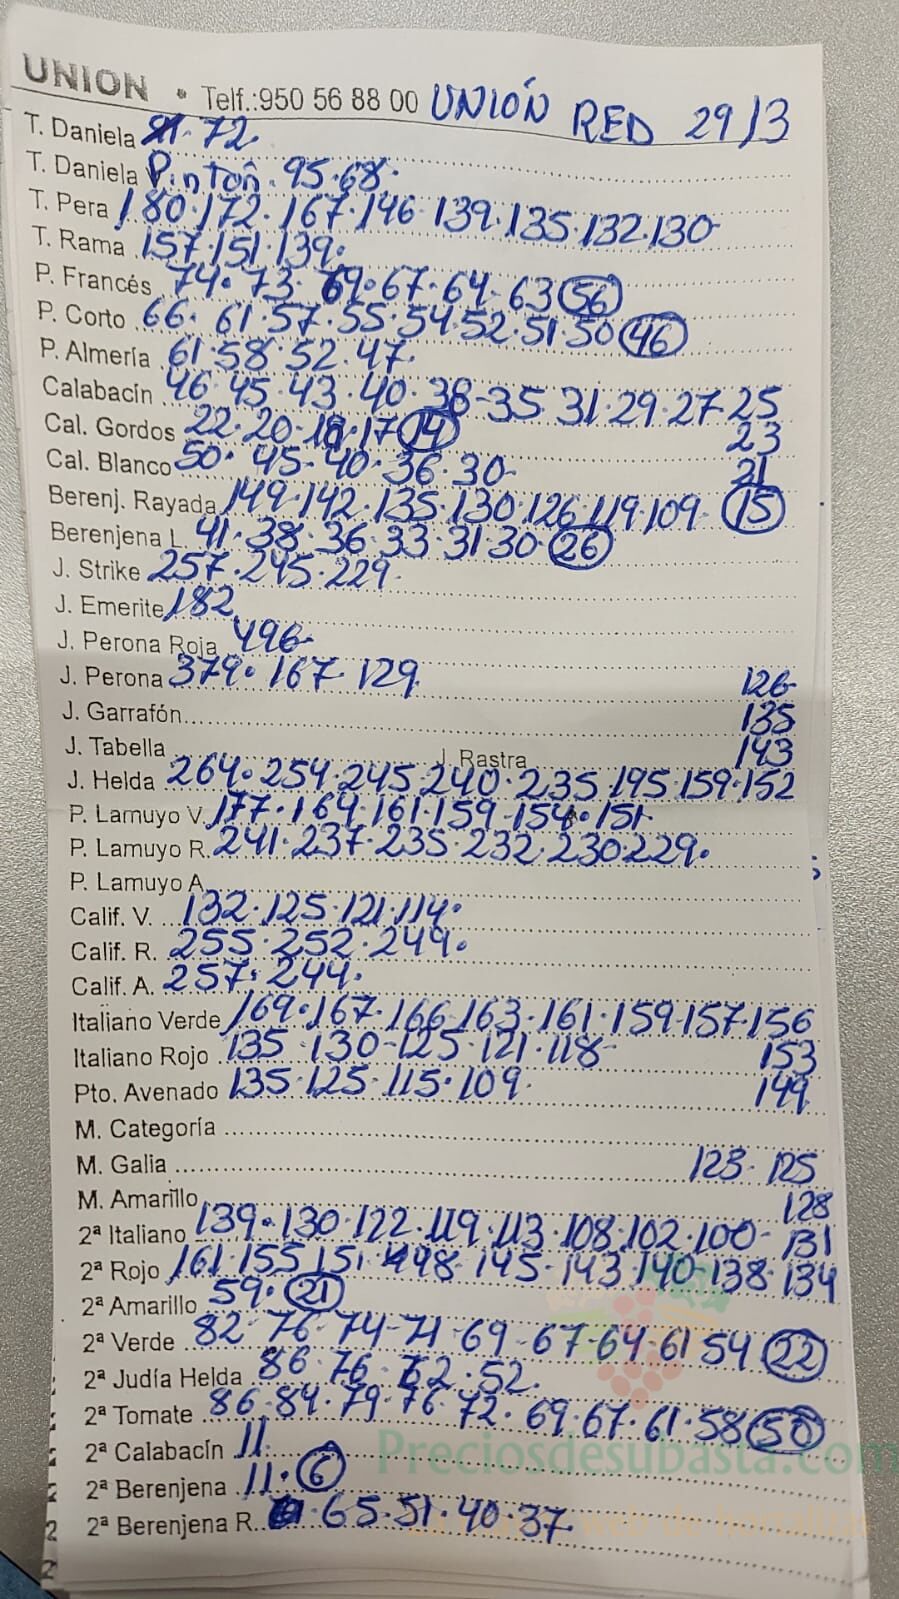 UNION • Telf.:950 56 88 00 UNIÓN RED 29/3
T. Daniela 72.
T. Daniela Pintón. 95.68.
T. Pera 180.172.167.146.139.135.132.130
T. Rama 157.151.139.
P. Francés 74.73.69.67.64.63 56
P. Corto 66.61.57.55.54.52.51.50 46
P. Almería 61.58.52.47.
Calabacín 46.45.43.40.38-35.31.29.27.25
23
Cal. Gordos 22.20-18.17 14
21
Cal. Blanco 50.45-40.36.30-
15
Berenj. Rayada 149.142.135.130.126.119.109
Berenjena L. 41.38.36.33.31.30.26
J. Strike 257.245.229.
J. Emerite 182
J. Perona Roja 496-
J. Perona 379.167.129
126-
J. Garrafón
135
J. Tabella J. Rastra
143
J. Helda 264.254.245.240.235.195.159.152
P. Lamuyo V. 177.164.161.159-154.151
P. Lamuyo R. 241.237.235.232.230.229.
P. Lamuyo A.
Calif. V. 132.125.121.114.
Calif. R. 255.252.249.
Calif. A. 257.244.
Italiano Verde 169.167.166.163.161.159.157.156
Italiano Rojo 135.130-125.121.118-
153
Pto. Avenado 135.125.115.109.
149
M. Categoría
M. Galia
123.125
M. Amarillo
128
2ª Italiano 139.130.122.119.113.108.102.100-131
2ª Rojo 161.155.151.148.145.143.140.138.134
2ª Amarillo 59.21
2ª Verde 82-76-74-71-69-67-64.61.54 22
2ª Judía Helda 86.76.62.52.
2ª Tomate 86.84.79.76.72.69.67.61.58 50
2ª Calabacín 11
Preciosdesubasta.com
2ª Berenjena 11.6
2ª Berenjena R. 65.51.40.37.
web de hortalizas